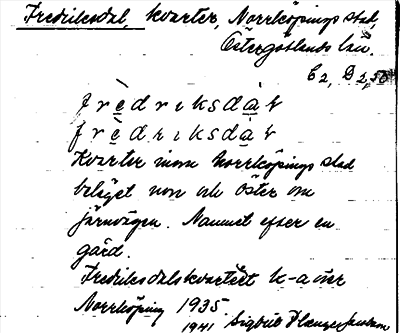 Fredriksdal, kvarter, Norrköpings stad,
Östergötlands län.
C2, D2,50
frèdriksdàl
frèdriksdàl
Kvarter inom Norrköpings stad
beläget norr och öster om
järnvägen. Namnet efter en
gård.
Fredriksdalskvarteret k-a över
Norrköping 1935
1941 Sigbrit Plænge Janson